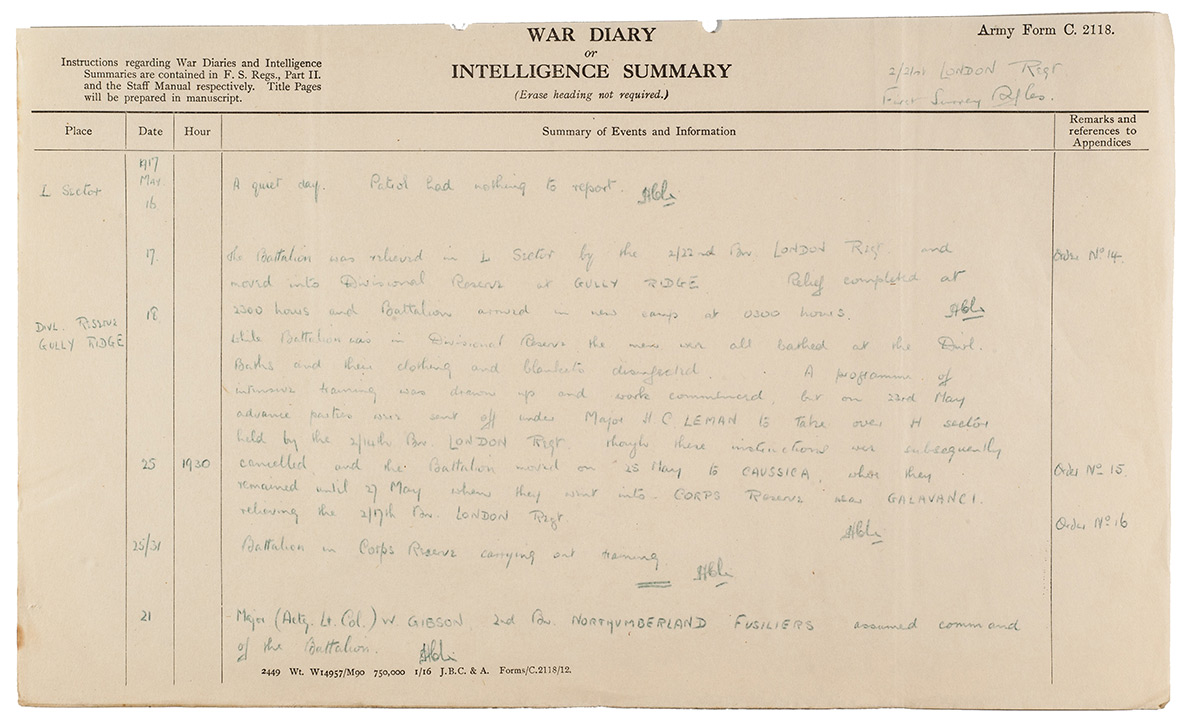 WAR DIARY
or
INTELLIGENCE SUMMARY
(Erase heading not required.)
Army Form C. 2118.
Instructions regarding War Diaries and Intelligence
Summaries are contained in F. S. Regs., Part II.
and the Staff Manual respectively. Title Pages
will be prepared in manuscript.
2/21st LONDON Regt
First Surrey Rifles.
Place Date Hour Summary of Events and Information Remarks and
references to
Appendices
1917
MAY
L Sector 16 A quiet day. Patrol had nothing to report.
17. The Battalion was relieved in L Sector by the 2/22nd Bn. LONDON Regt. and Order No 14.
moved into Divisional Reserve at GULLY RIDGE. Relief completed at
18 2300 hours and Battalion arrived in new camp at 0300 hours.
DIVL. RESERVE
GULLY RIDGE
While Battalion was in Divisional Reserve the men were all bathed at the Divl.
Baths and their clothing and blankets disinfected. A programme of
intensive training was drawn up and work commenced, but on 23rd May
advance parties were sent off under Major H. C. LEMAN to take over H sector
held by the 2/14th Bn. LONDON Regt. though these instructions were subsequently
25 1930 cancelled, and the Battalion moved on 25 May to CAUSSICA, where they Order No 15.
remained until 27 May when they went into CORPS Reserve near GALAVANCI.
relieving the 2/17th Bn. LONDON Regt. Order No 16
25/31 Battalion in Corps Reserve carrying out training
21 Major (Actg. Lt. Col.) W GIBSON, 2nd Bn. NORTHUMBERLAND FUSILIERS assumed command
of the Battalion.
2449 Wt. W14957/M90 750,000 1/16 J.B.C. & A. Forms/C.2118/12.